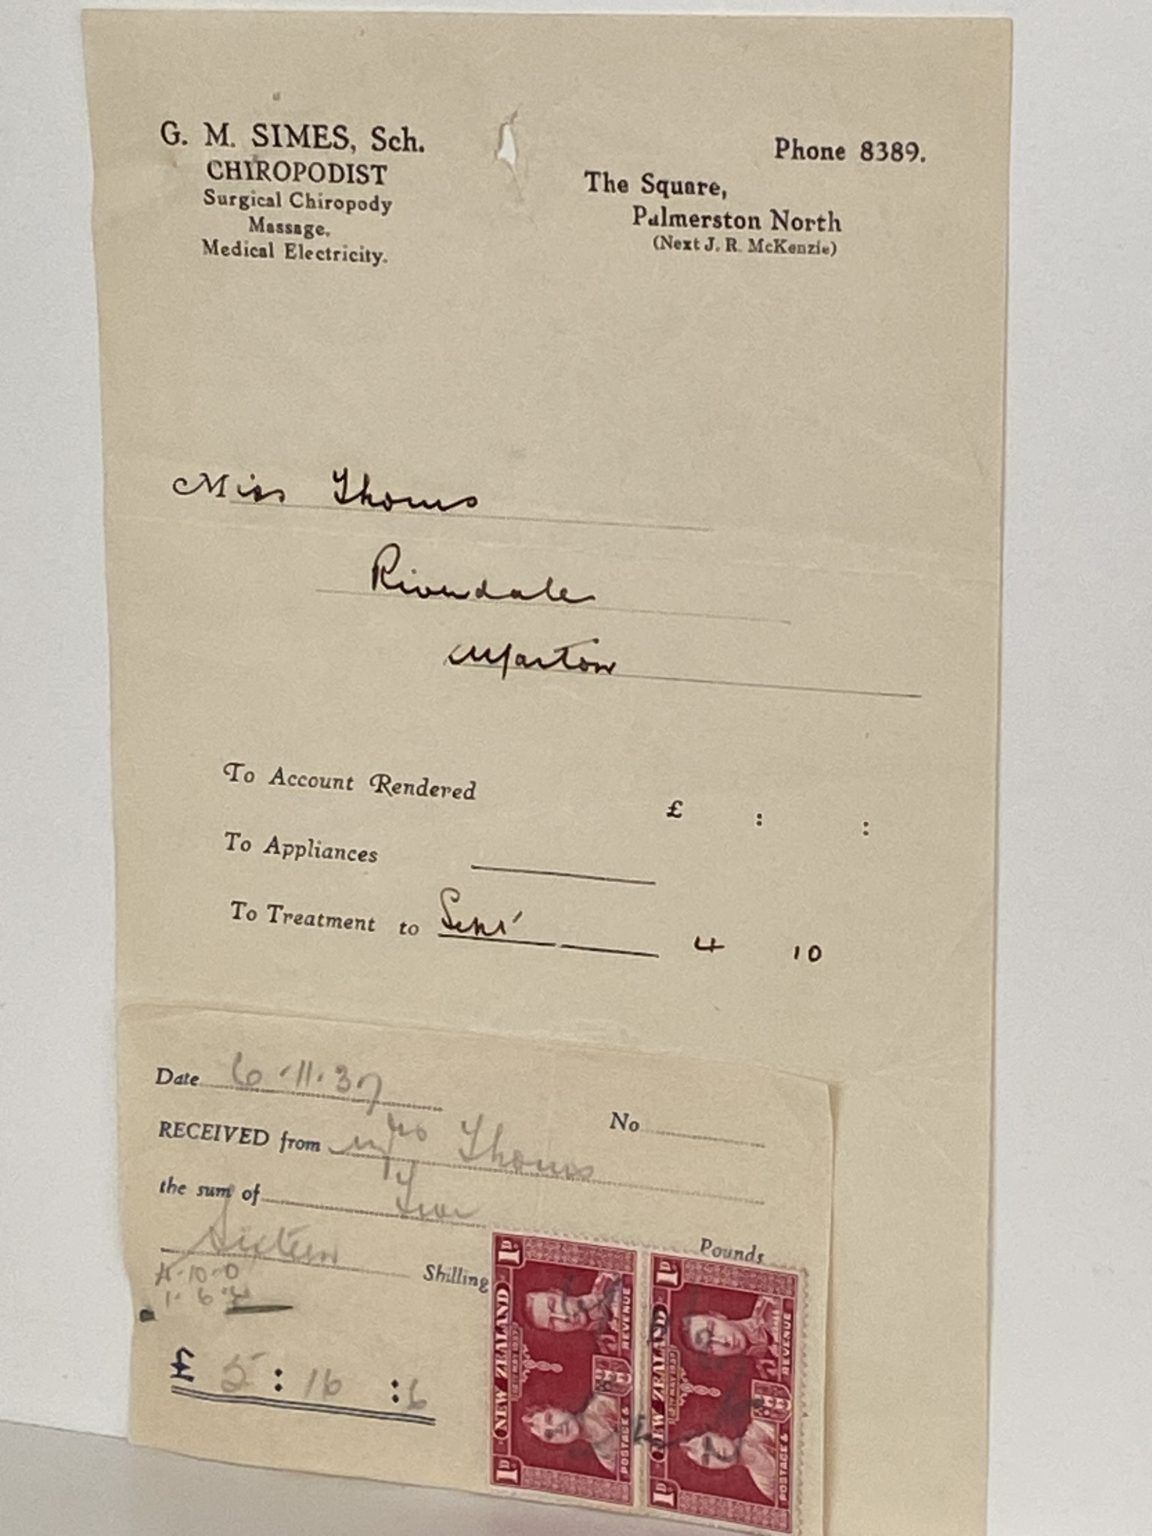 G. M. SIMES, Sch.
CHIROPODIST
Surgical Chiropody
Massage,
Medical Electricity.
Phone 8389.
The Square,
Palmerston North
(Next J. R. McKenzie)
Miss Thoms
Riverdale
Marton
To Account Rendered £ : :
To Appliances
To Treatment to Sept 4 10
Date 6.11.37
No
RECEIVED from Thoms
the sum of Five
Pounds
Sixteen Shilling
4-10-0
1 6
£ 5 : 16 : 6
1D
NEW ZEALAND
12TH MAY 1937
POSTAGE & REVENUE
1D
1D
NEW ZEALAND
12TH MAY 1937
POSTAGE & REVENUE
1D